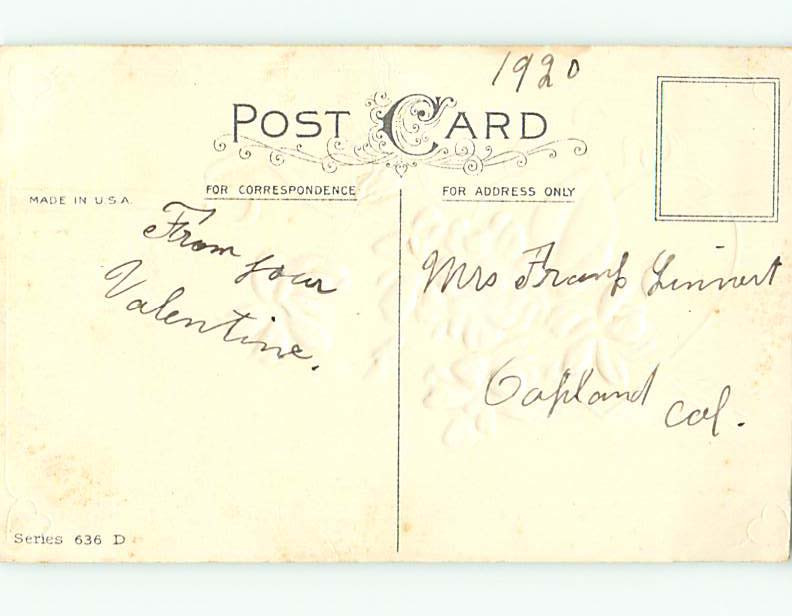 1920
POST CARD
FOR CORRESPONDENCE
FOR ADDRESS ONLY
MADE IN U.S.A.
From your
Valentine.
Mrs Frank Linnert
Oakland
Cal.
Series 636 D